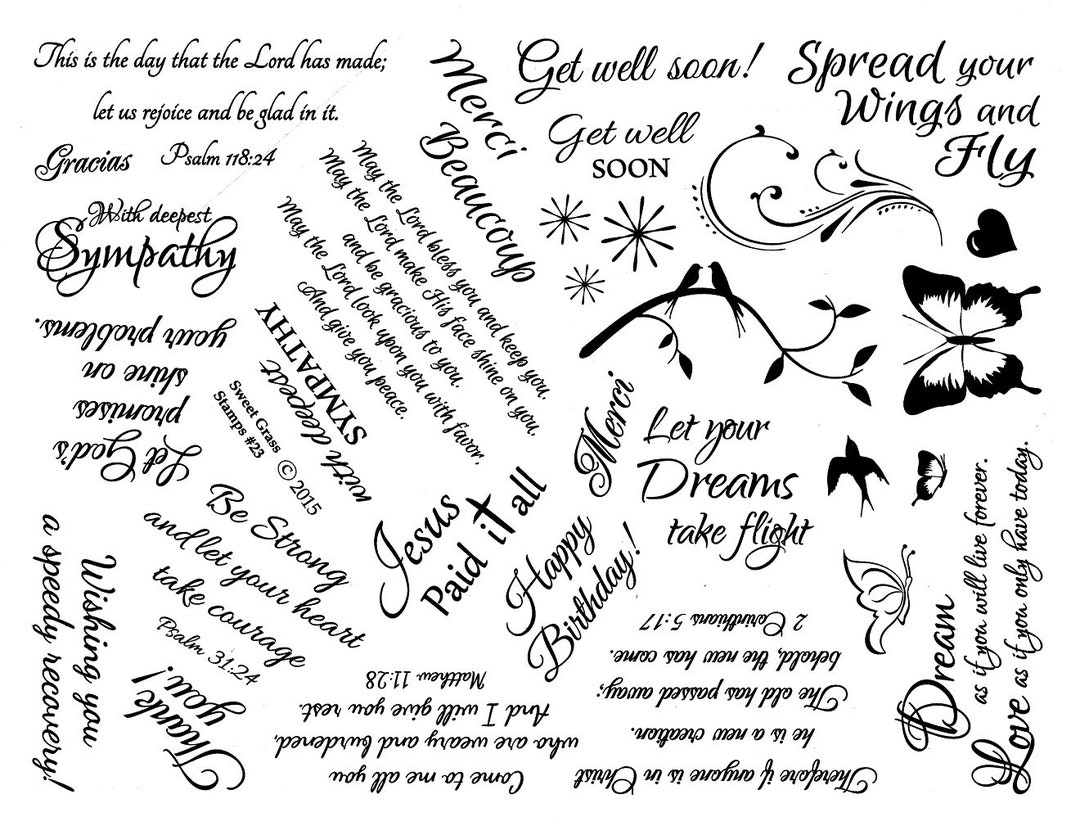 This is the day that the Lord has made;
let us rejoice and be glad in it.
Psalm 118:24
Gracias
With deepest
Sympathy
Merci
Beaucoup
Get well soon!
Get well
SOON
Spread your
Wings and
Fly
May the Lord bless you and keep you,
May the Lord make His face shine on you,
and be gracious to you.
May the Lord look upon you with favor,
And give you peace.
Let God's
promises
shine on
your problems.
with deepest
SYMPATHY
Sweet Grass
Stamps #23
© 2015
Merci
Let your
Dreams
take flight
Jesus
Paid it all
Happy
Birthday!
Be Strong
and let your heart
take courage
Psalm 31:24
Wishing you
a speedy recovery!
Thank
you!
Come to me all you
who are weary and burdened,
And I will give you rest.
Matthew 11:28
Therefore if anyone is in Christ
he is a new creation.
The old has passed away;
behold, the new has come.
2 Corinthians 5:17
Dream
as if you will live forever.
Love as if you only have today.